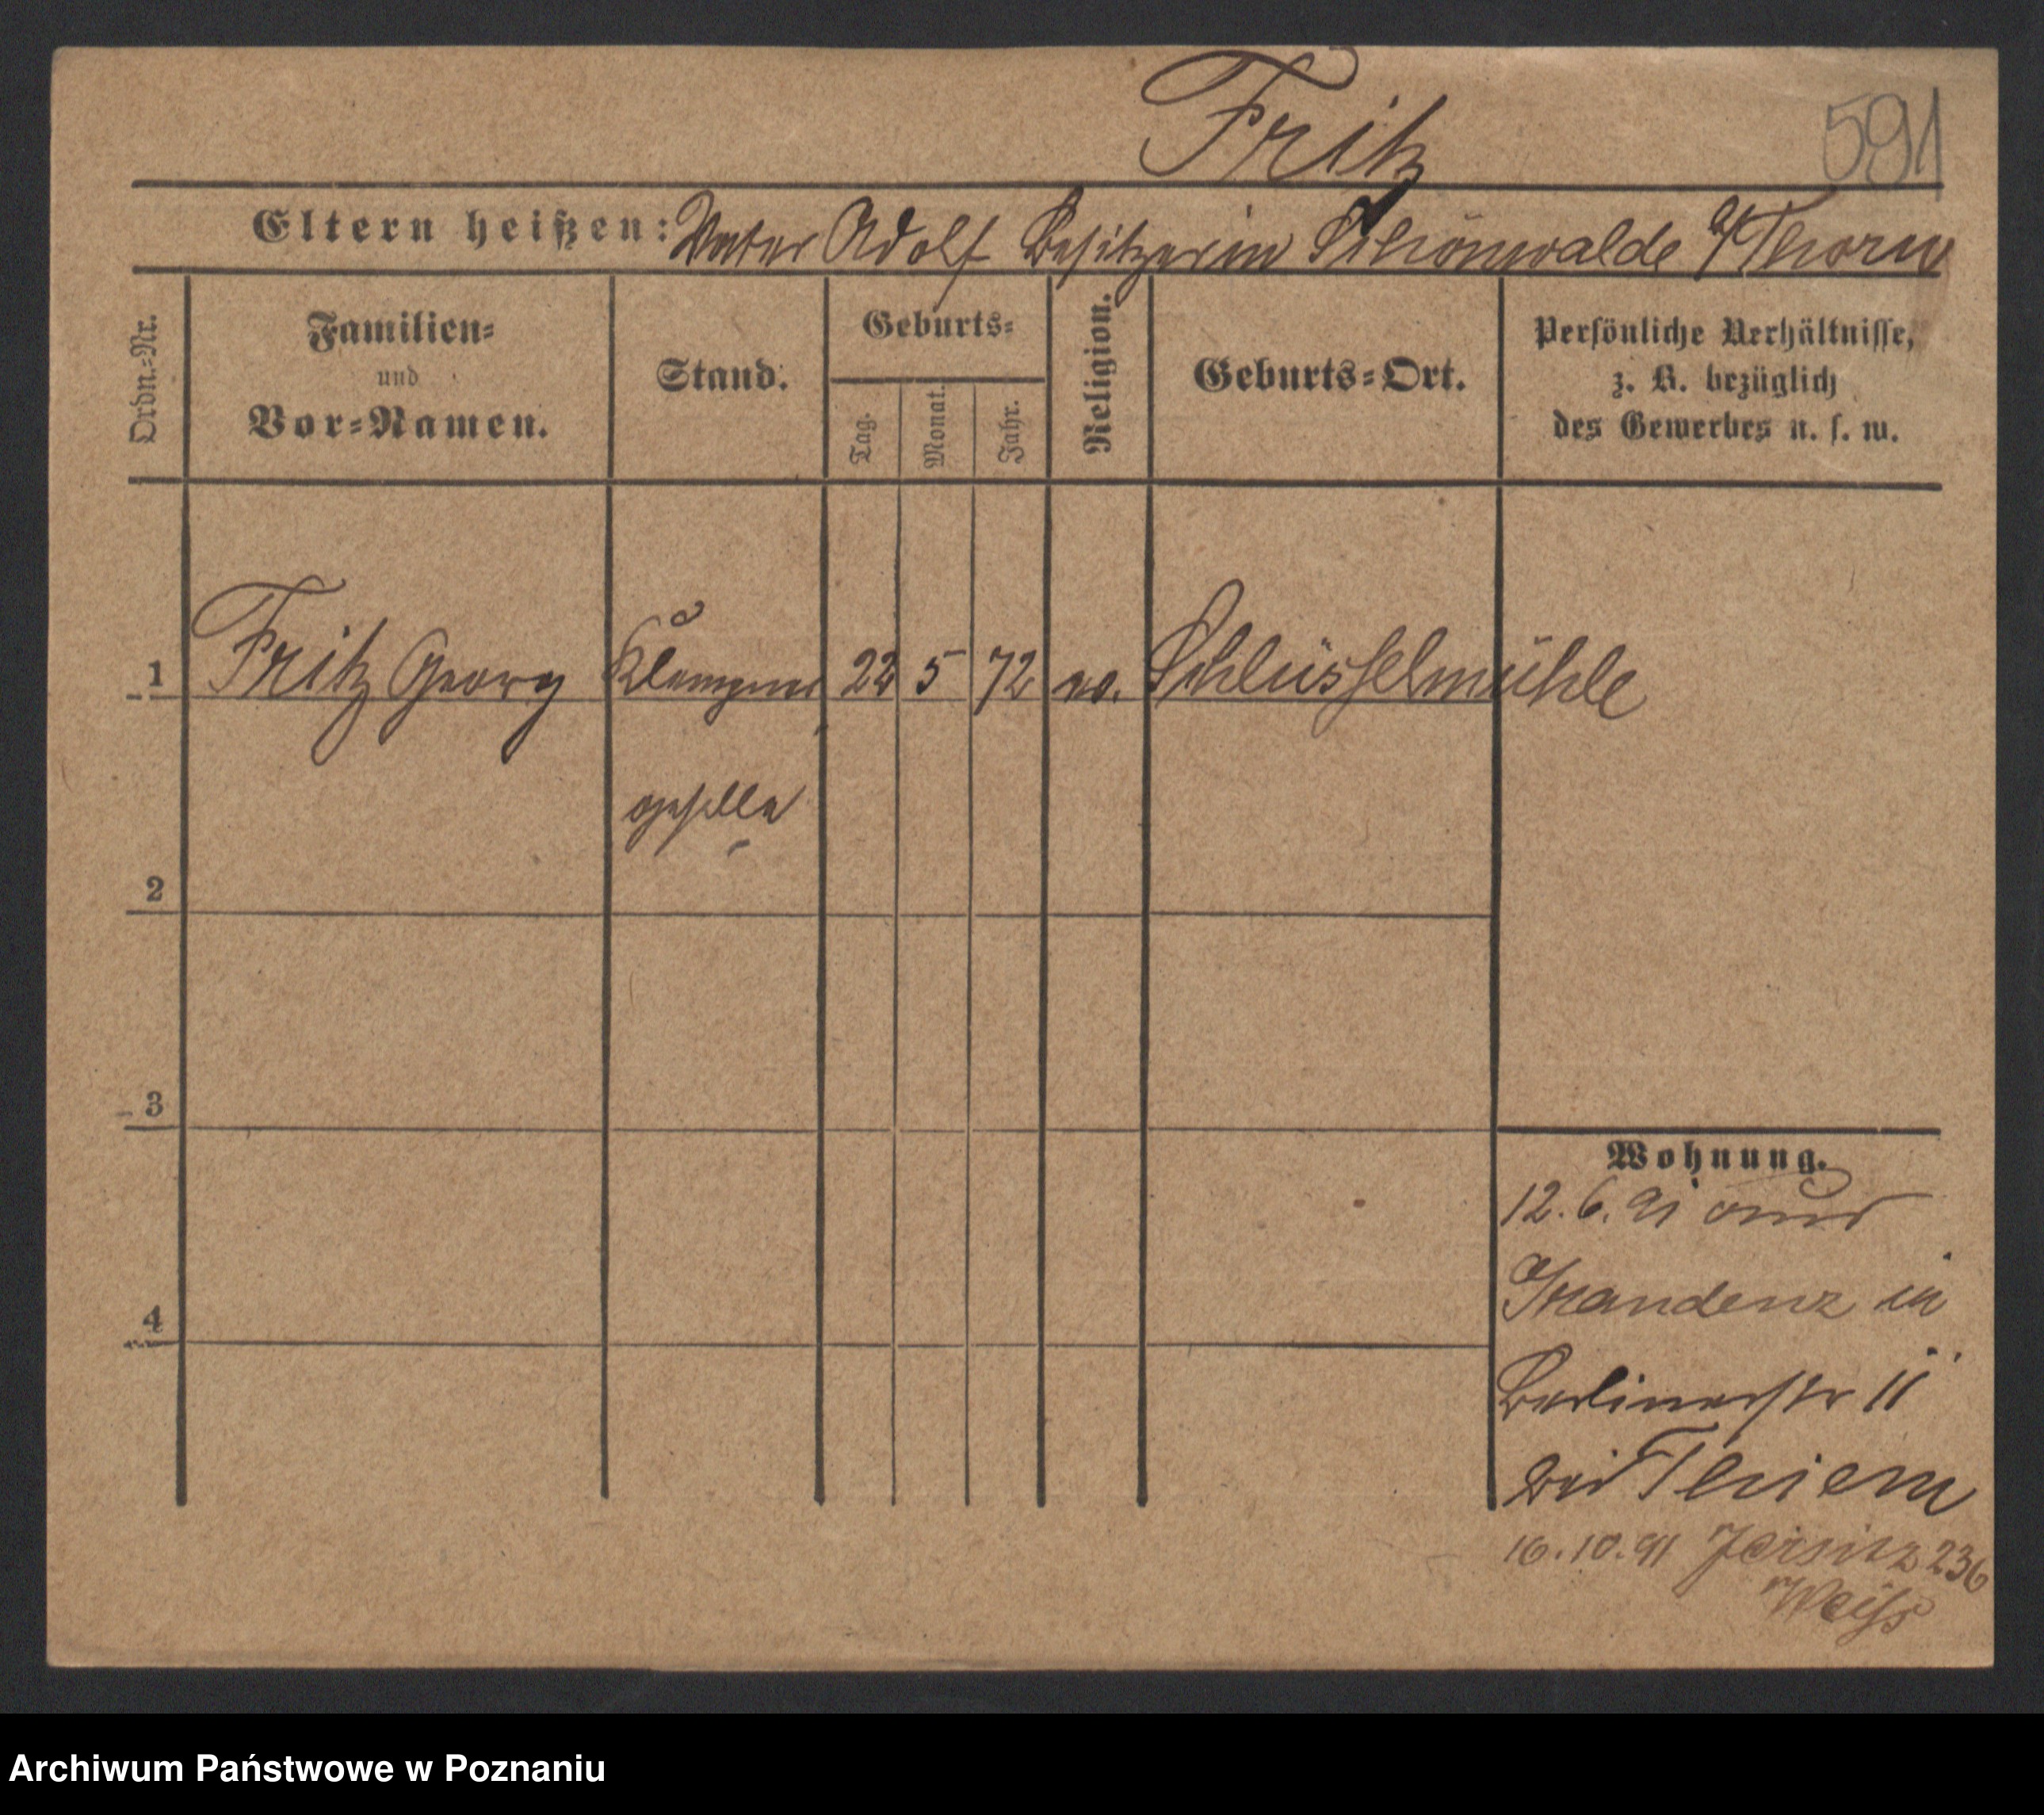 Fritz 591
Eltern heißen: Vater Adolf Besitzer in Schönwalde b/Thorn
Ordn.-Nr. Familien- und Vor-Namen. Stand. Geburts- Tag. Monat. Jahr. Religion. Geburts-Ort. Persönliche Verhältnisse, z. B. bezüglich des Gewerbes u. s. w.
1 Fritz Georg Klempner 22 5 72 ev. Schlüsselmühle
geselle
2
3
4
Wohnung.
12.6.91 aus
Graudenz in
Berlinerstr 11
bei Thiem
16.10.91 Jersitz 236
Weiß
Archiwum Państwowe w Poznaniu